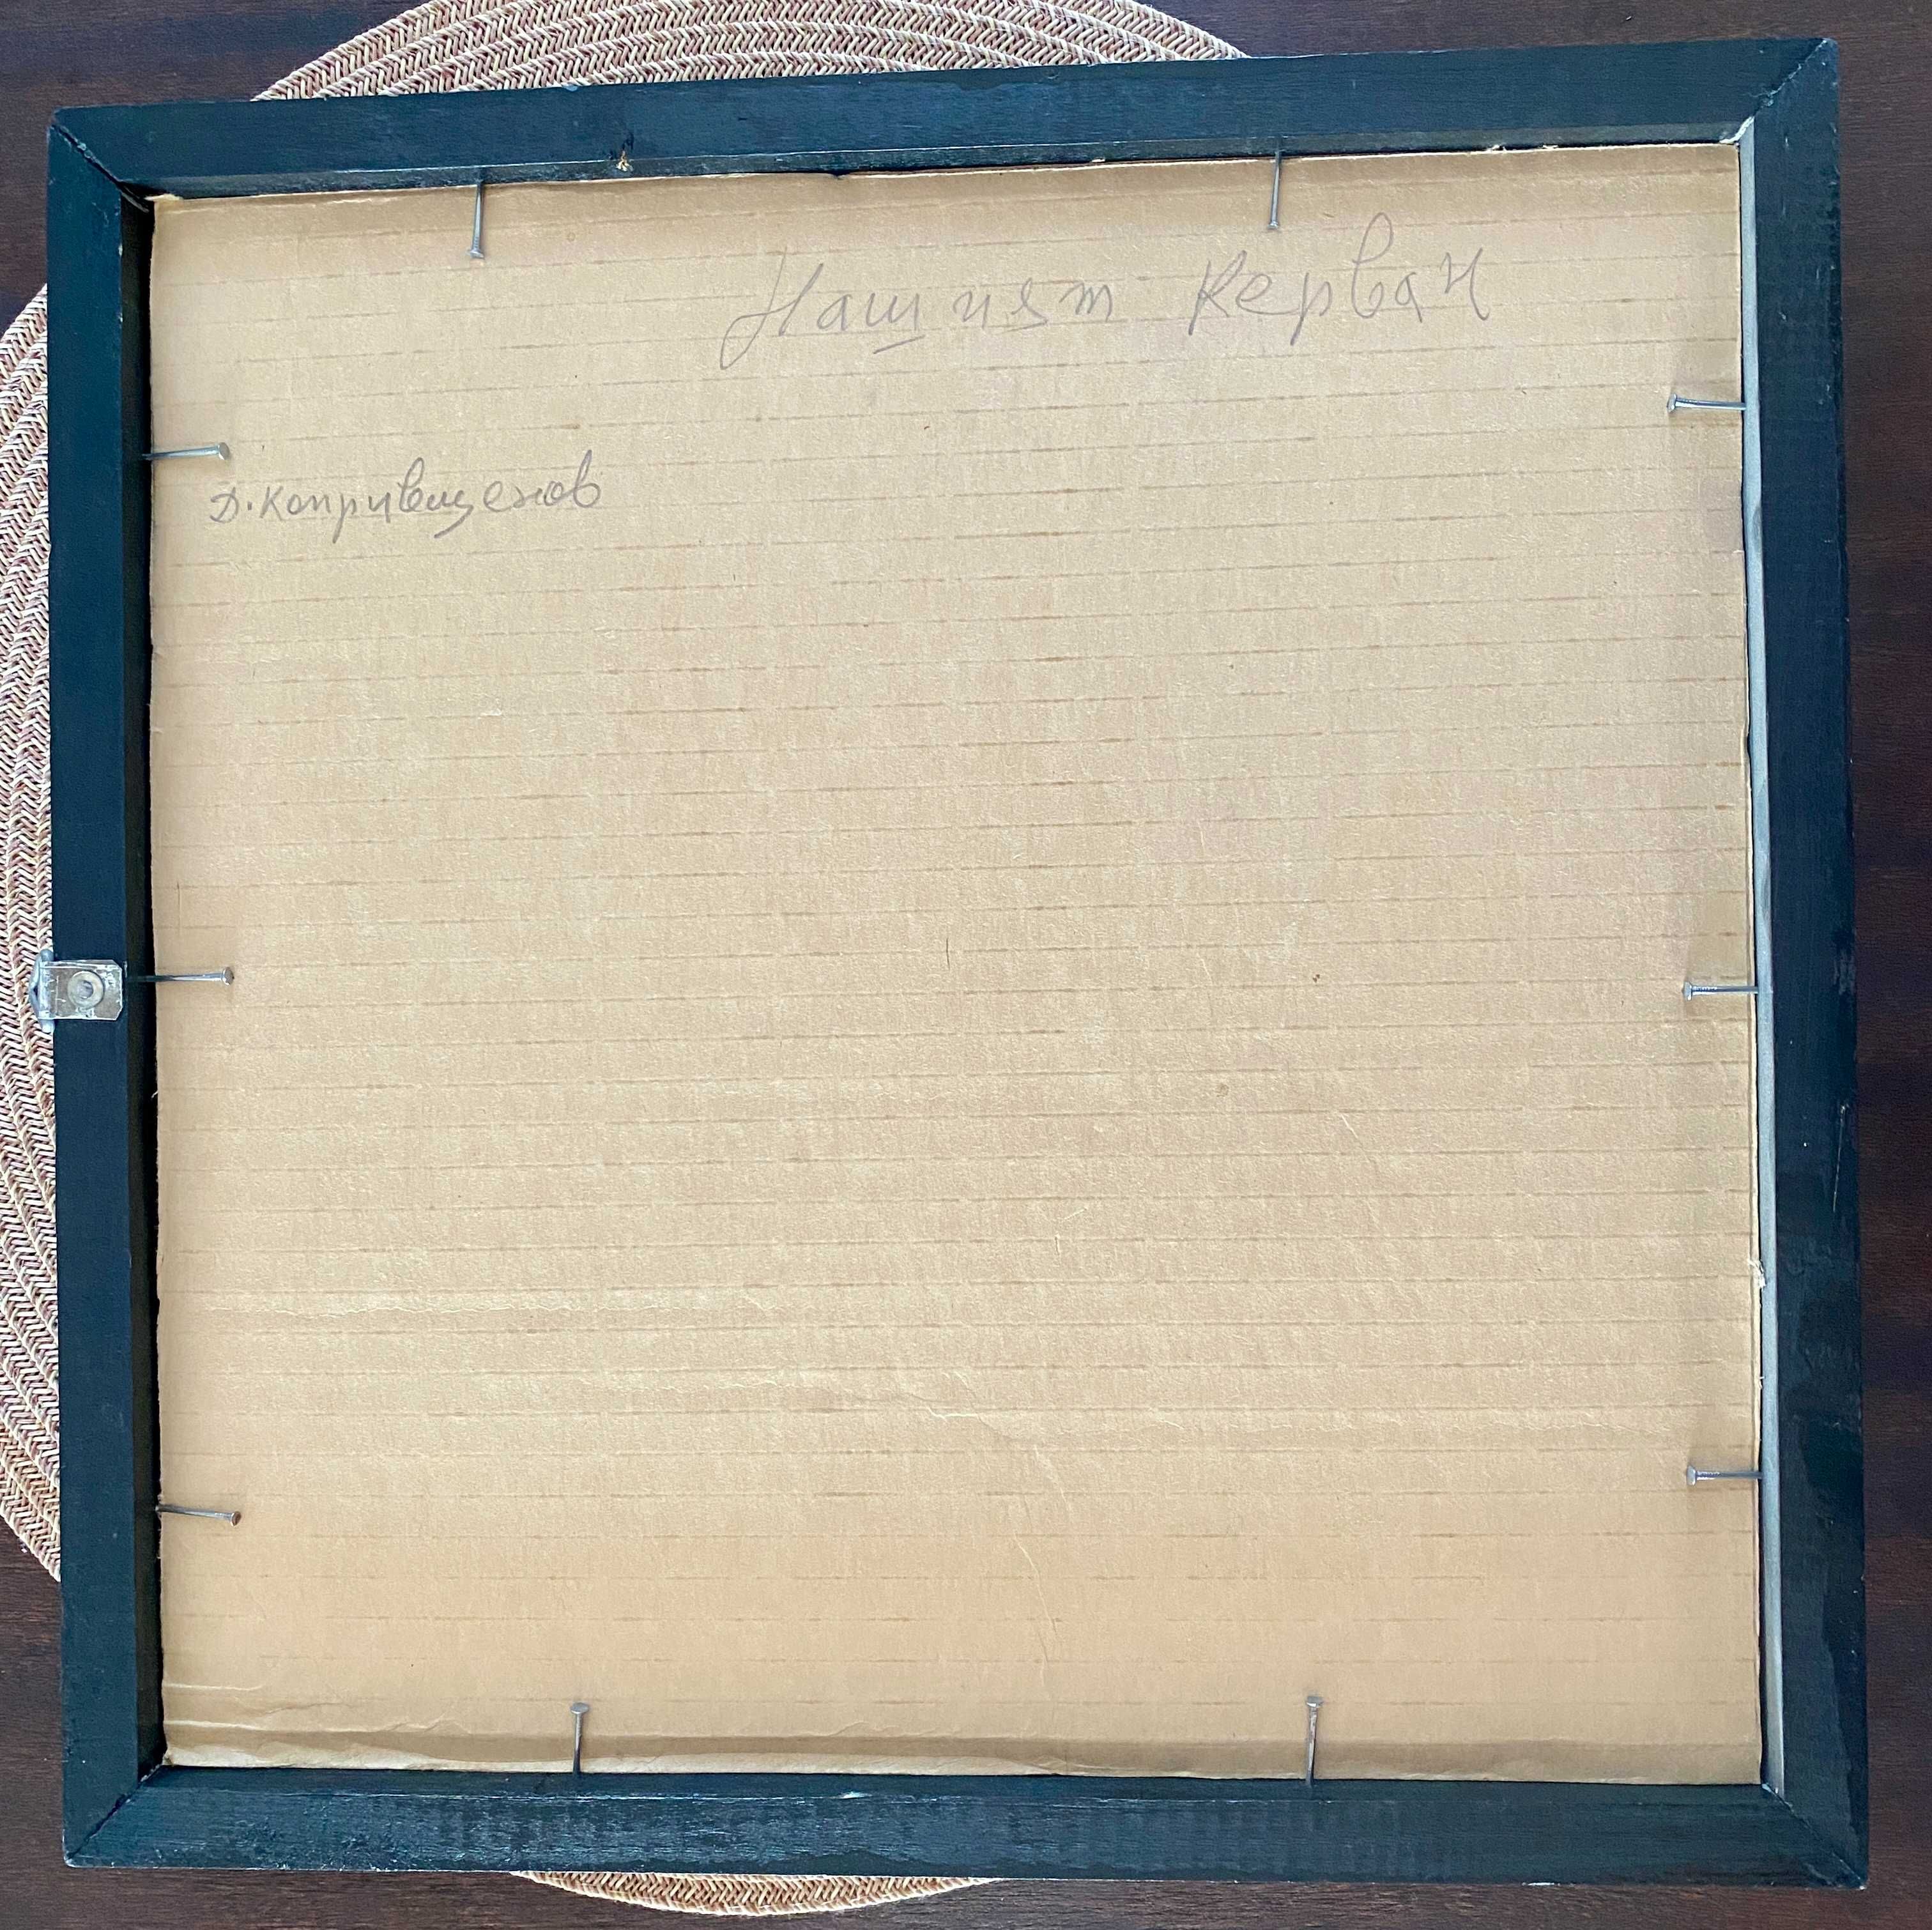 Нашият керван
Д. Копривщенов